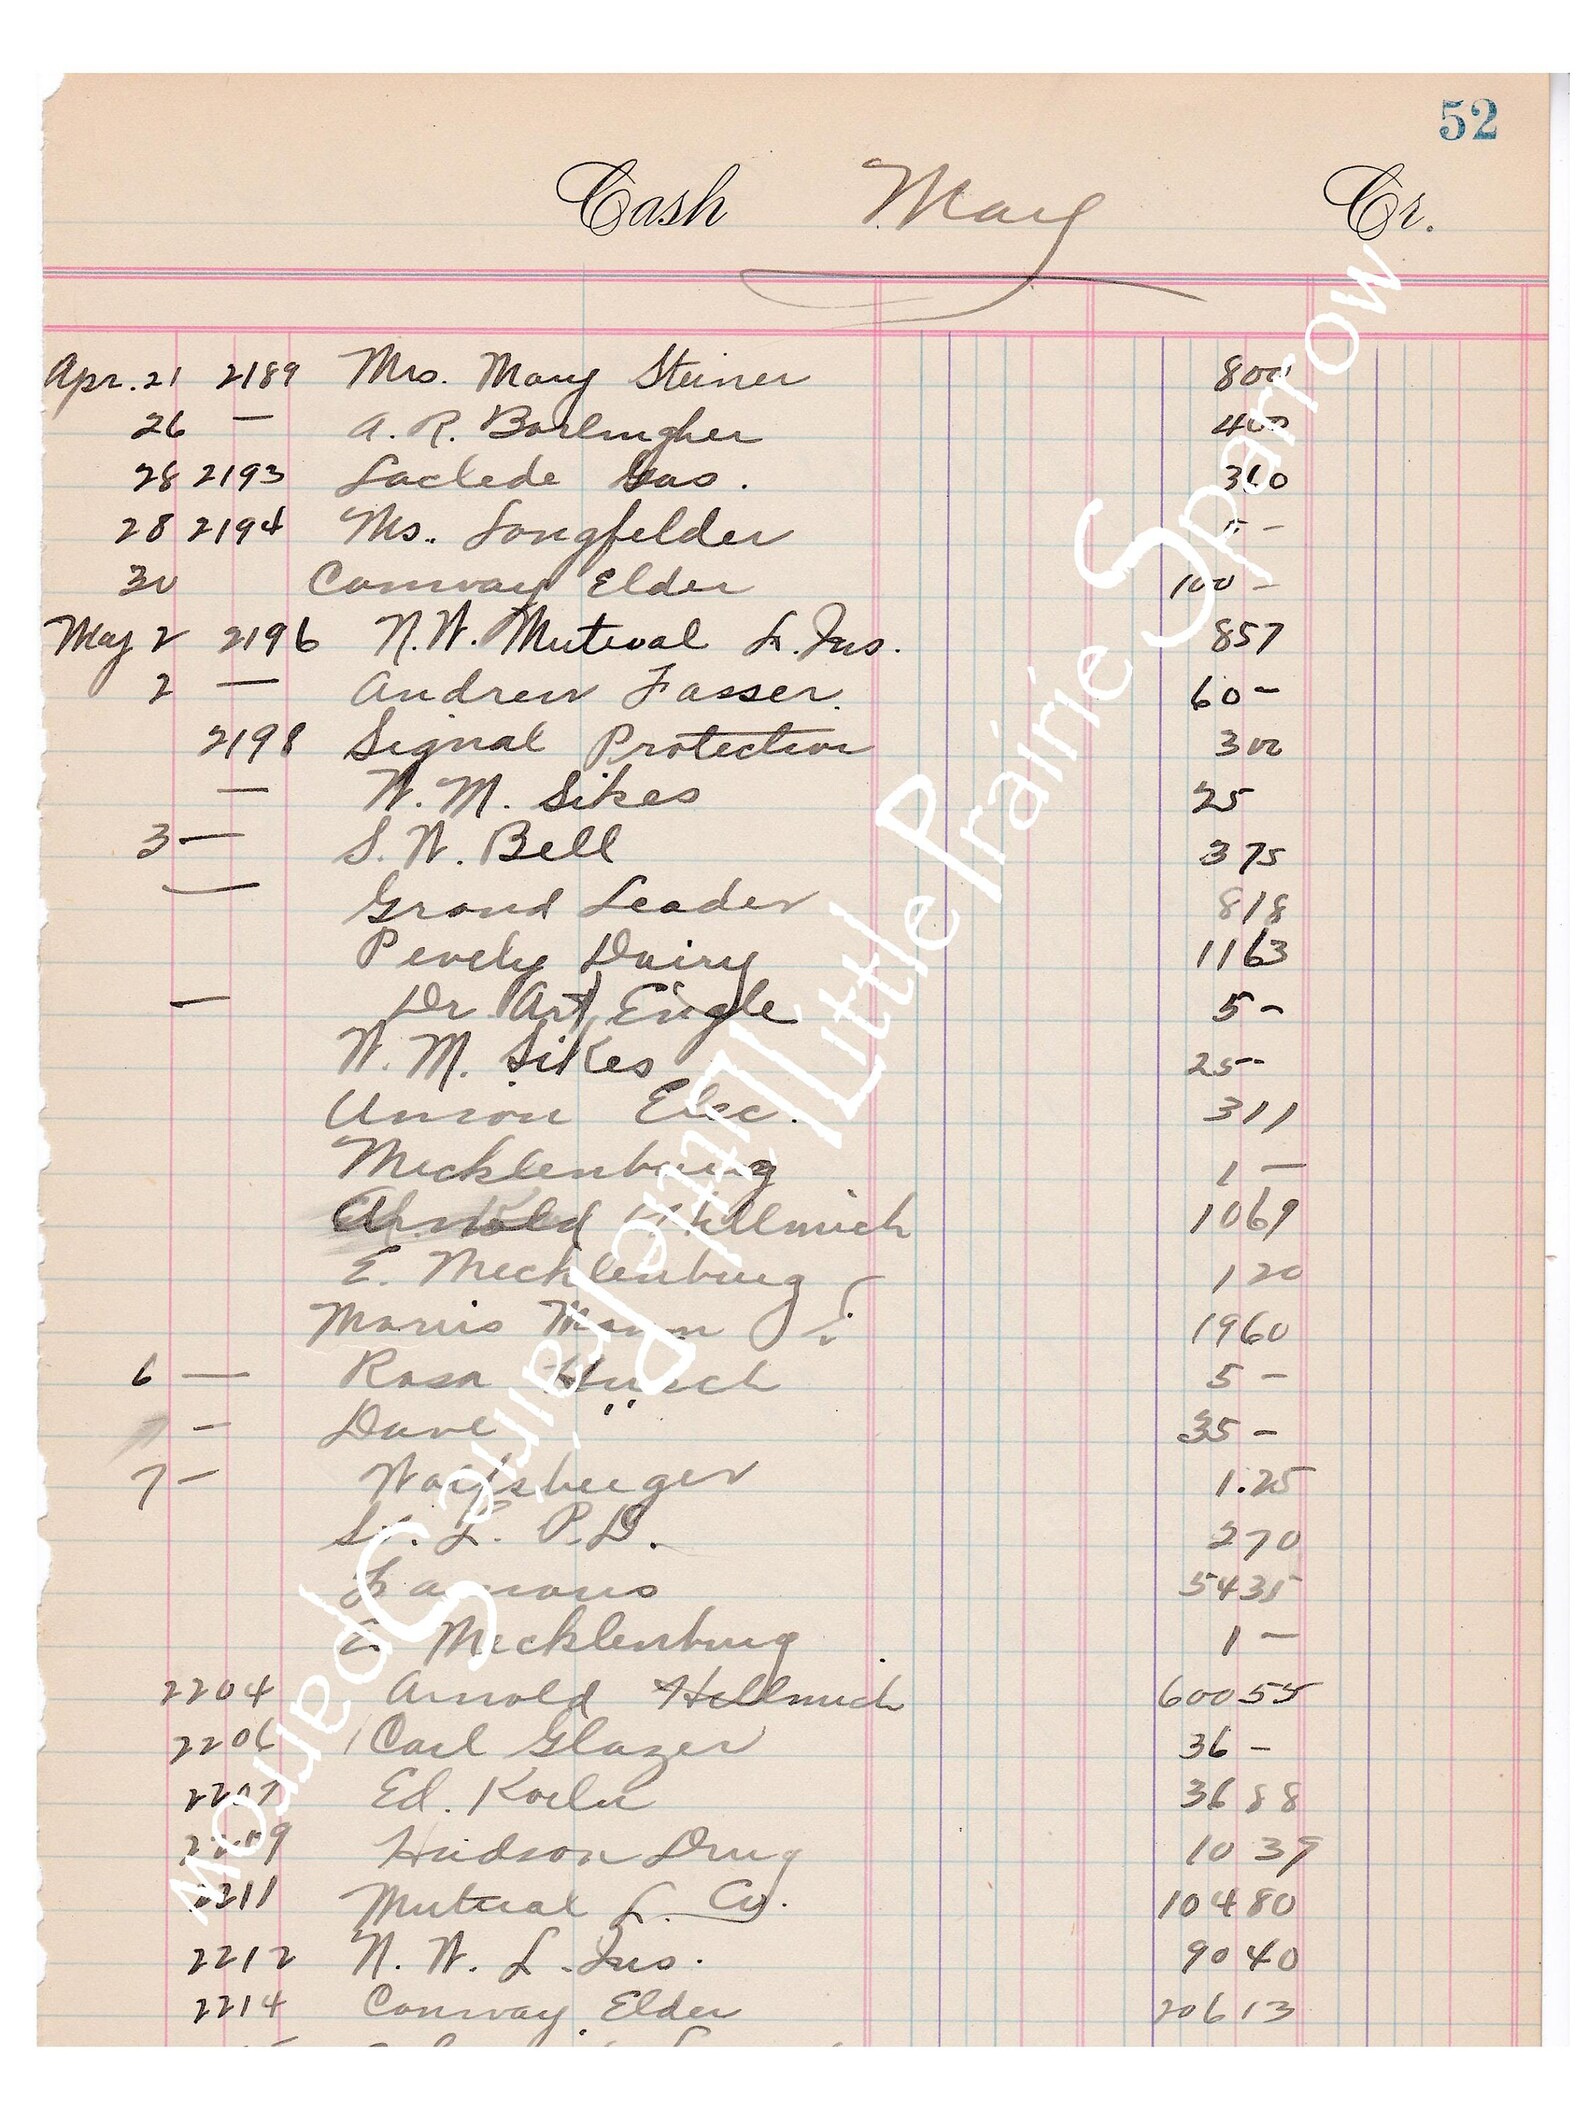 52
Cash May Cr.
Apr. 21 2189 Mrs. Mary Steiner 800
26 — A. R. 400
28 2193 Laclede Gas. 360
28 2194 Ms. Longfelder 5 -
30 Conway Elder 100 -
May 2 2196 N.W. Muteual L. Ins. 857
2 — Andrew Fasser. 60 -
2198 Signal Protection 300
— W. M. Sikes 25
3 — S. W. Bell 375
— Grand Leader 818
Pevely Dairy 1163
— Dr Art Eigle 5 -
W. M. Sikes 25 --
Union Elec. 311
Mecklenburg 1 —
Arnold Hellmich 1069
E. Mecklenburg 120
Morris 1960
6 — Rosa Hirsch 5 -
- Dave " 35 -
7 - 1.25
St. L. P.D. 270
Famous 5435
E. Mecklenburg 1 —
2204 Arnold Hellmich 60055
2206 Carl Glazer 36 -
2207 Ed. 3688
2209 Hudson Drug 1039
2211 Mutual L. Co. 10480
2212 N. W. L. Ins. 9040
2214 Conway Elder 20613
Little Prairie Sparrow
Little Prairie Sparrow